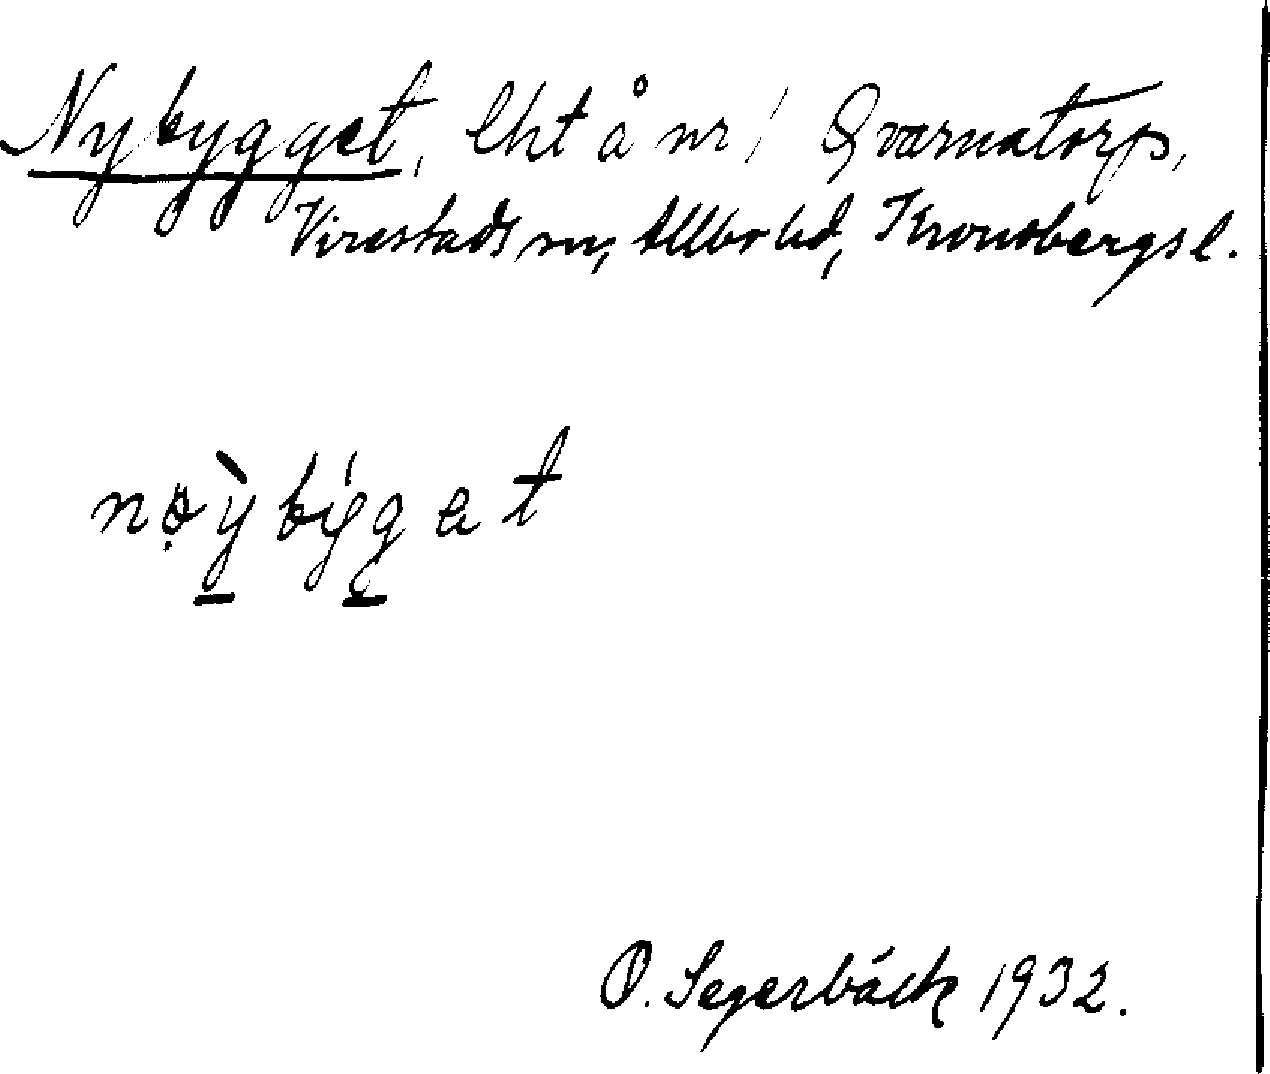 Nybygget, lht å nr 1 Qvarnatorp,
Virestads sn, Allbo hd, Kronobergs l.
nøỳbýget
O. Segerbäck 1932.